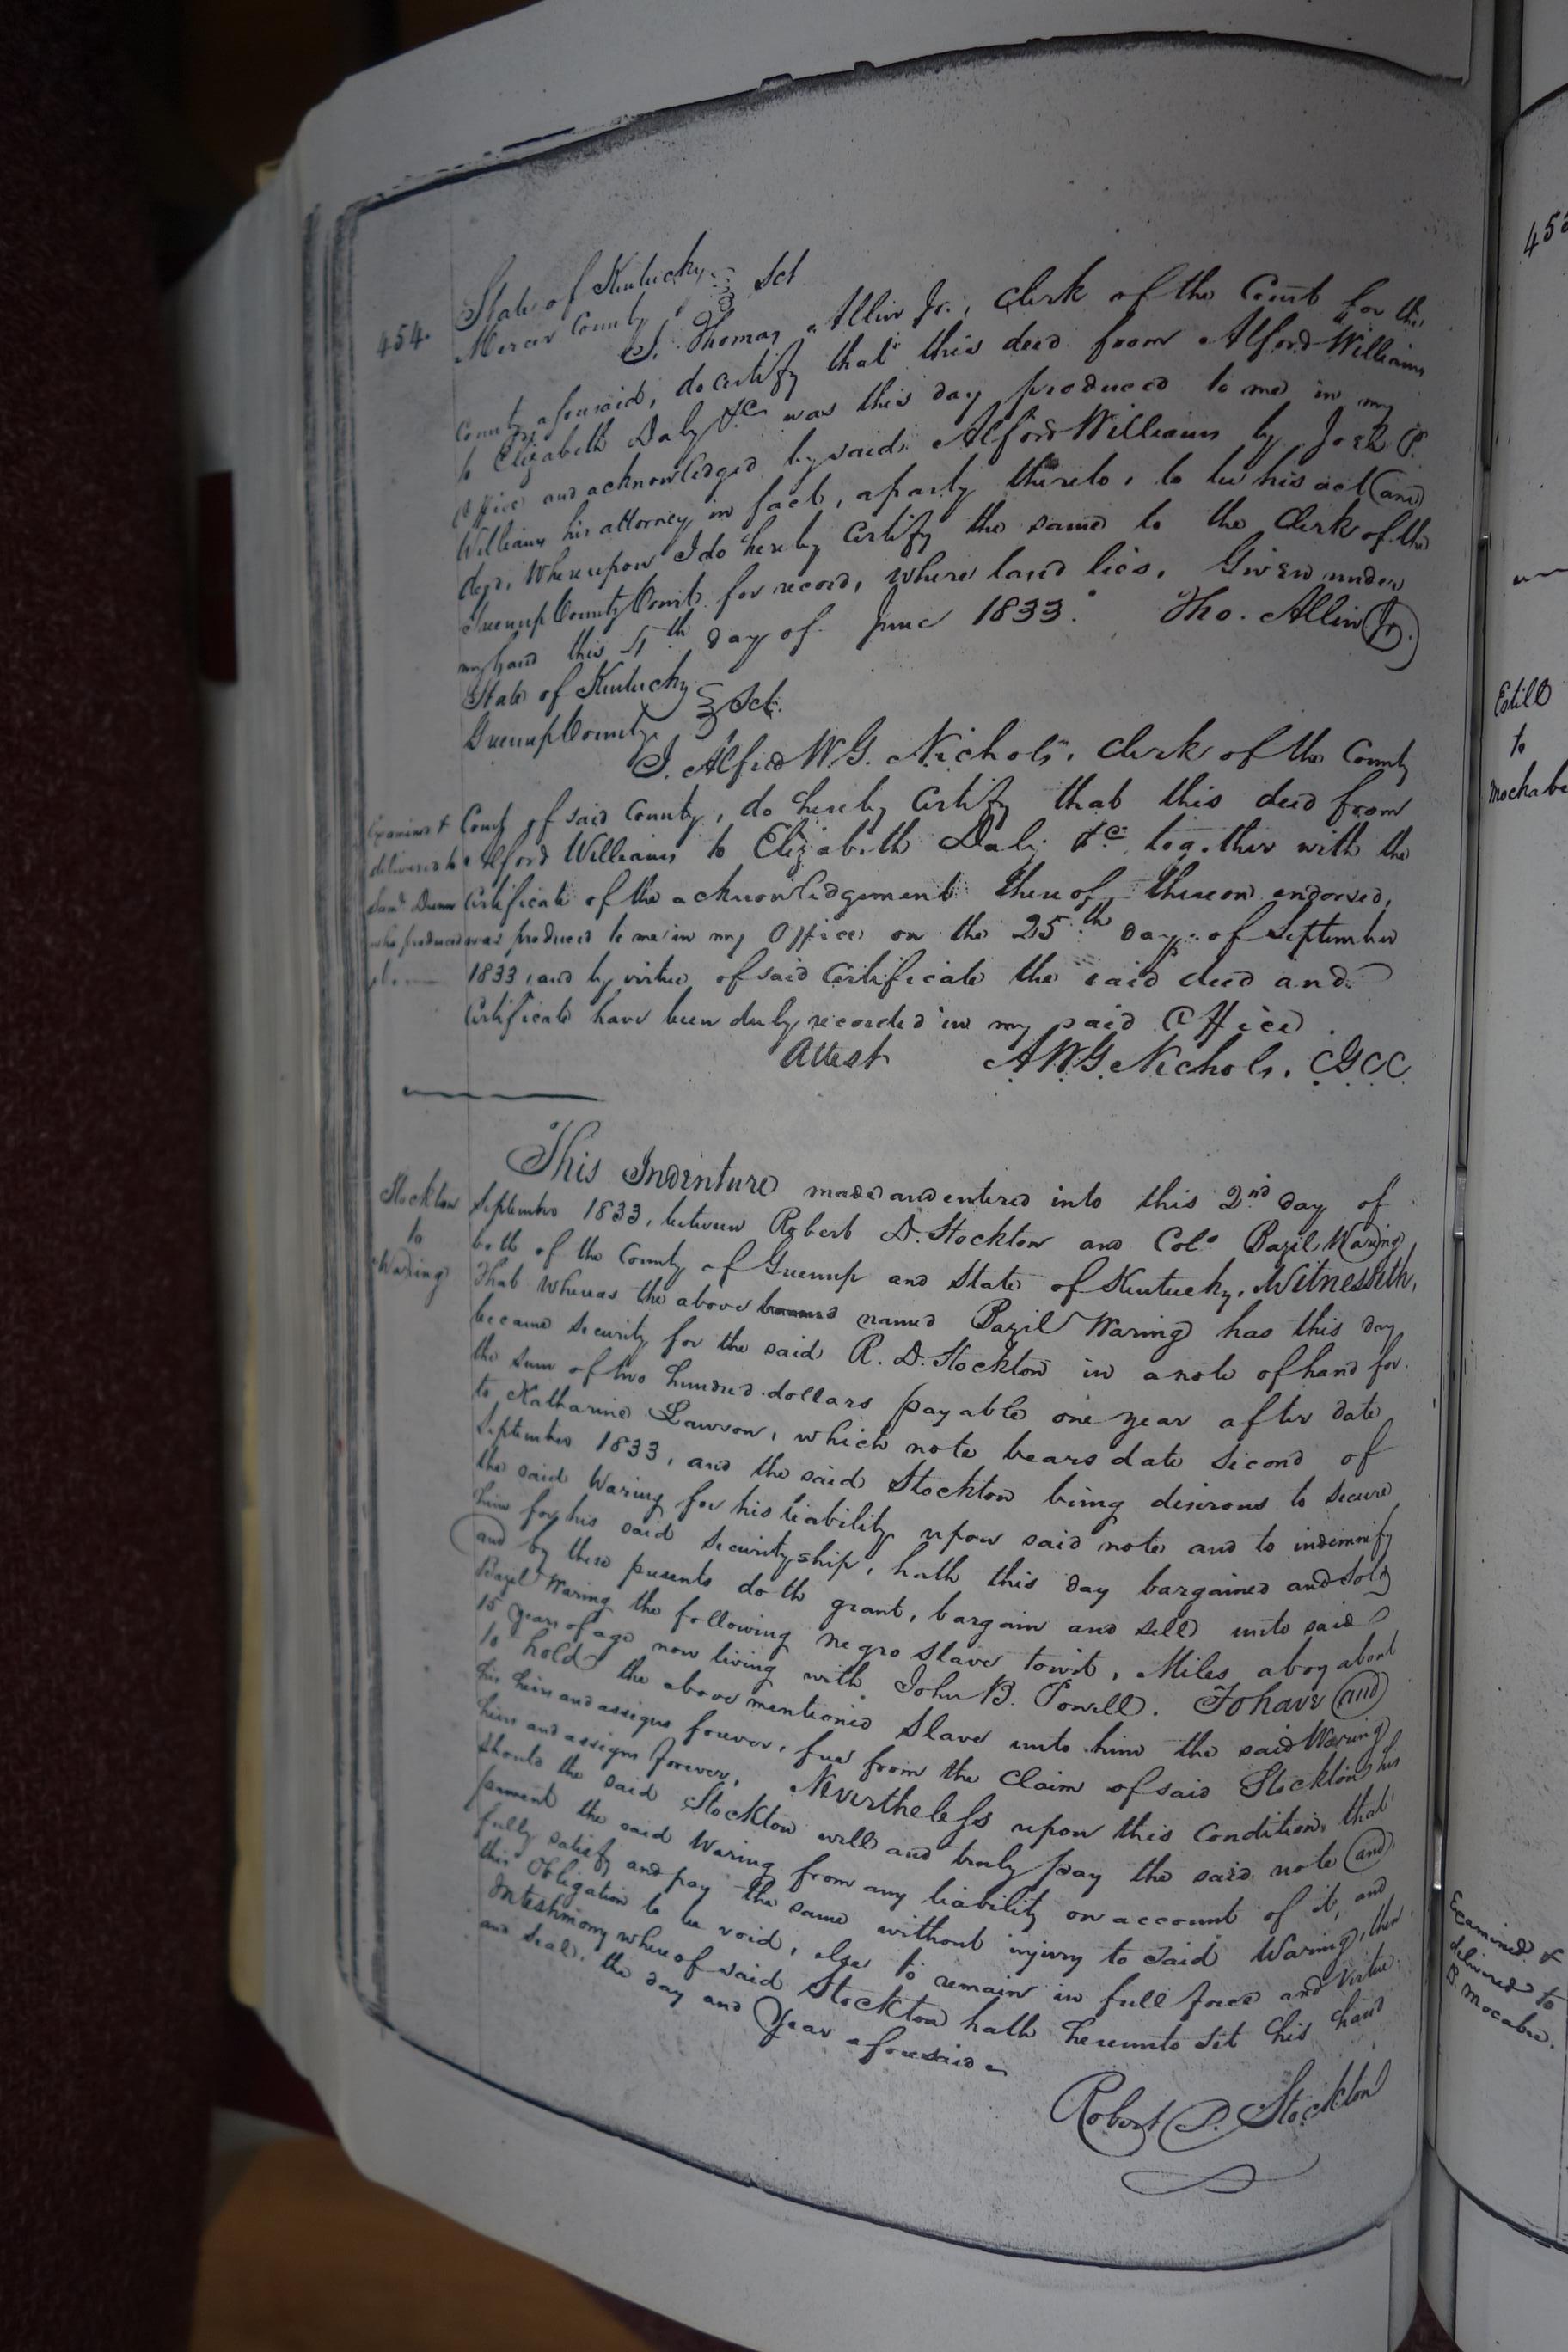 454.
State of Kentucky } Sct
Mercer County
I, Thomas Allin Jr., Clerk of the Court for the
County aforesaid, do certify that this deed from Alford Williams
to Elizabeth Daly &c was this day produced to me in my
Office and acknowledged by said Alford Williams by Jack P.
Williams his attorney in fact, a party thereto, to be his act and
deed, Whereupon I do hereby certify the same to the Clerk of the
Greenup County Court for record, where land lies. Given under
my hand this 4th day of June 1833. Tho. Allin Jr.
State of Kentucky } Sct.
Greenup County
I, Alfred W. G. Nichols, Clerk of the County
Court of said County, do hereby Certify that this deed from
Alford Williams to Elizabeth Daly &c. together with the
Certificate of the acknowledgement thereof thereon endorsed,
was produced to me in my Office on the 25th day of September
1833, and by virtue of said Certificate the said deed and
Certificate have been duly recorded in my said Office.
Attest A. W. G. Nichols, C.G.C.C.
Examined &
delivered to
who produced
Stockton
to
Waring
This Indenture made and entered into this 2nd day of
September 1833, between Robert D. Stockton and Colo Bazil Waring
both of the County of Greenup and State of Kentucky, Witnesseth,
That whereas the above named Bazil Waring has this day
became security for the said R. D. Stockton in a note of hand for
the sum of two hundred dollars payable one year after date
to Katharine Lawson, which note bears date second of
September 1833, and the said Stockton being desirous to secure
the said Waring for his liability upon said note and to indemnify
him for his said securityship, hath this day bargained and sold
and by these presents doth grant, bargain and sell unto said
Bazil Waring the following negro slave towit, Miles, a boy about
15 years of age now living with John B. Powell. To have and
to hold the above mentioned Slave unto him the said Waring
his heirs and assigns forever, free from the claim of said Stockton his
heirs and assigns forever, Nevertheless upon this Condition, that
should the said Stockton well and truly pay the said note and
the said Waring from any liability on account of it, and
fully satisfy and pay the same without injury to said Waring, then
this Obligation to be void, else to remain in full force and virtue.
In testimony whereof said Stockton hath hereunto set his hand
and seal, the day and Year aforesaid
Robert D. Stockton
Estill
to
Mochabe
Examined &
delivered to